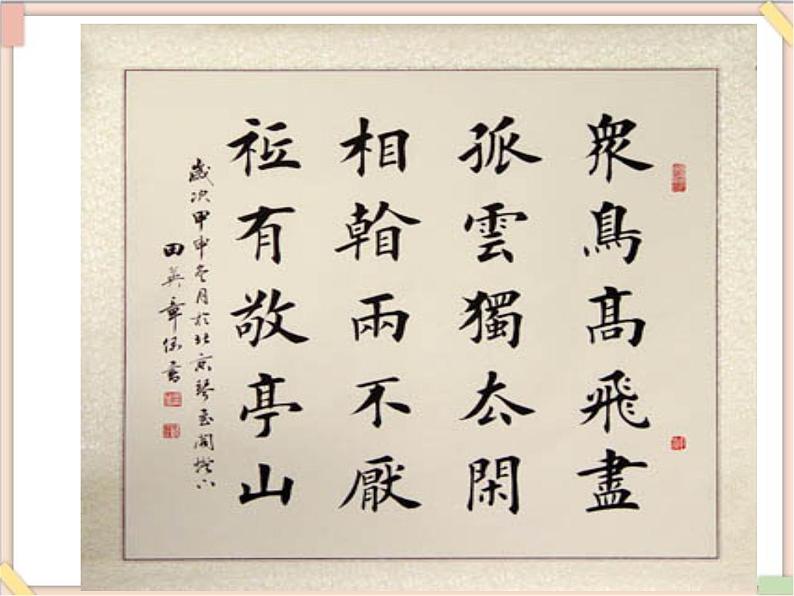 衆鳥髙飛盡
孤雲獨厺閑
相看兩不厭
祗有敬亭山
歲次甲申冬月於北京閣燈下
田英章書